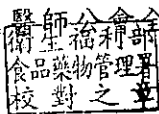 醫師公會全
衛生福利部
食品藥物管理署
校對之章